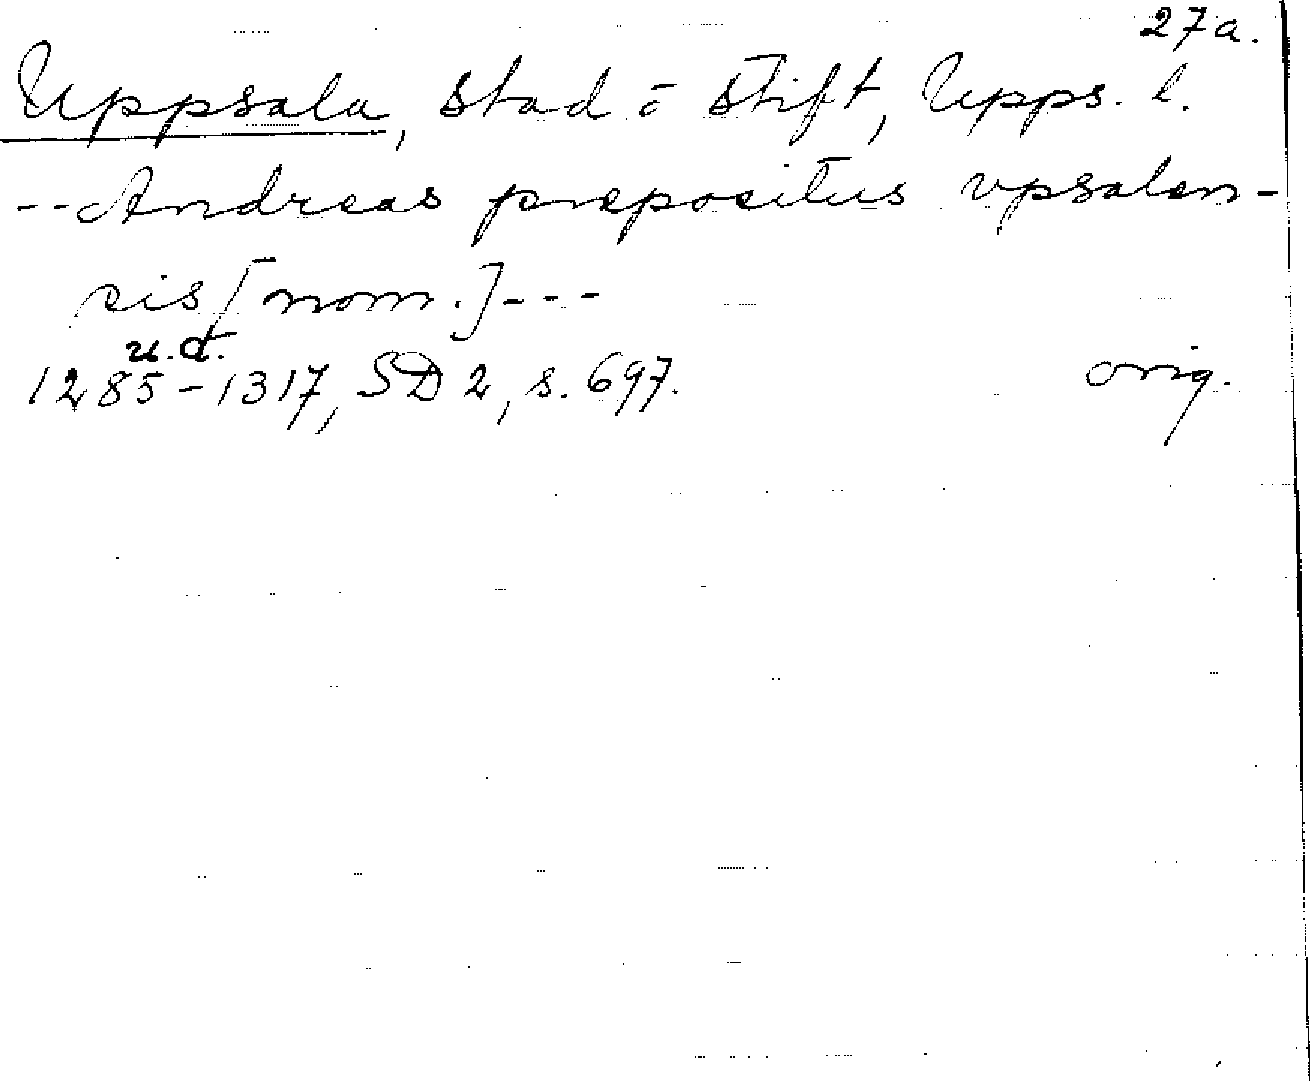 27a.
Uppsala, stad o stift, Upps. l.
--Andreas prepositus vpsalen-
sis [nom.]---
u.d.
1285-1317, SD 2, s. 697. orig.